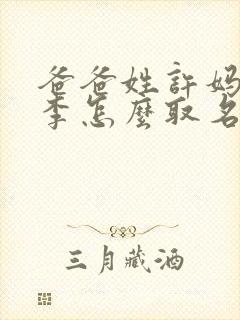 爸爸姓許妈
李怎麼取名
三月藏酒